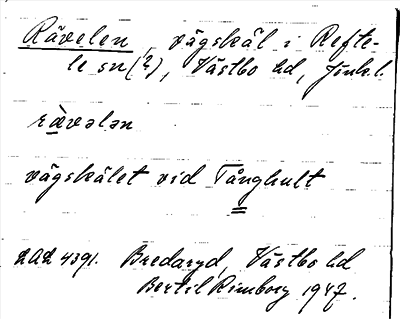 Rävelen, vägskäl i Refte-
le sn (?), Västbo hd, Jönk. l.
rævələn
vägskälet vid Tånghult
LAL 4391. Bredaryd, Västbo hd
Bertil Rimborg 1947.